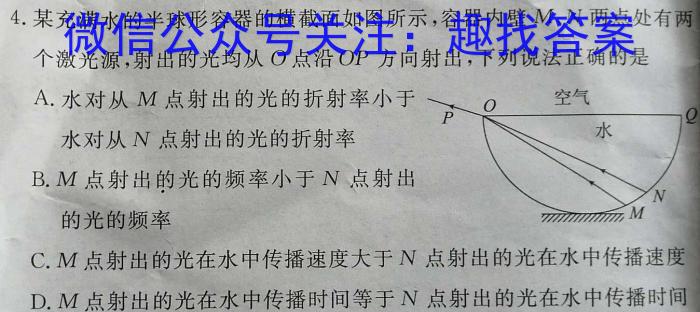 4. 某充满水的半球形容器的横截面如图所示,容器内壁 M、N 两点处有两
微信公众号关注：趣找答案
个激光源,射出的光均从 O 点沿 OP 方向射出,下列说法正确的是
A. 水对从 M 点射出的光的折射率小于
水对从 N 点射出的光的折射率
B. M 点射出的光的频率小于 N 点射出
的光的频率
P O 空气 Q
水
N
M
C. M 点射出的光在水中传播速度大于 N 点射出的光在水中传播速度
D. M 点射出的光在水中传播时间等于 N 点射出的光在水中传播时间